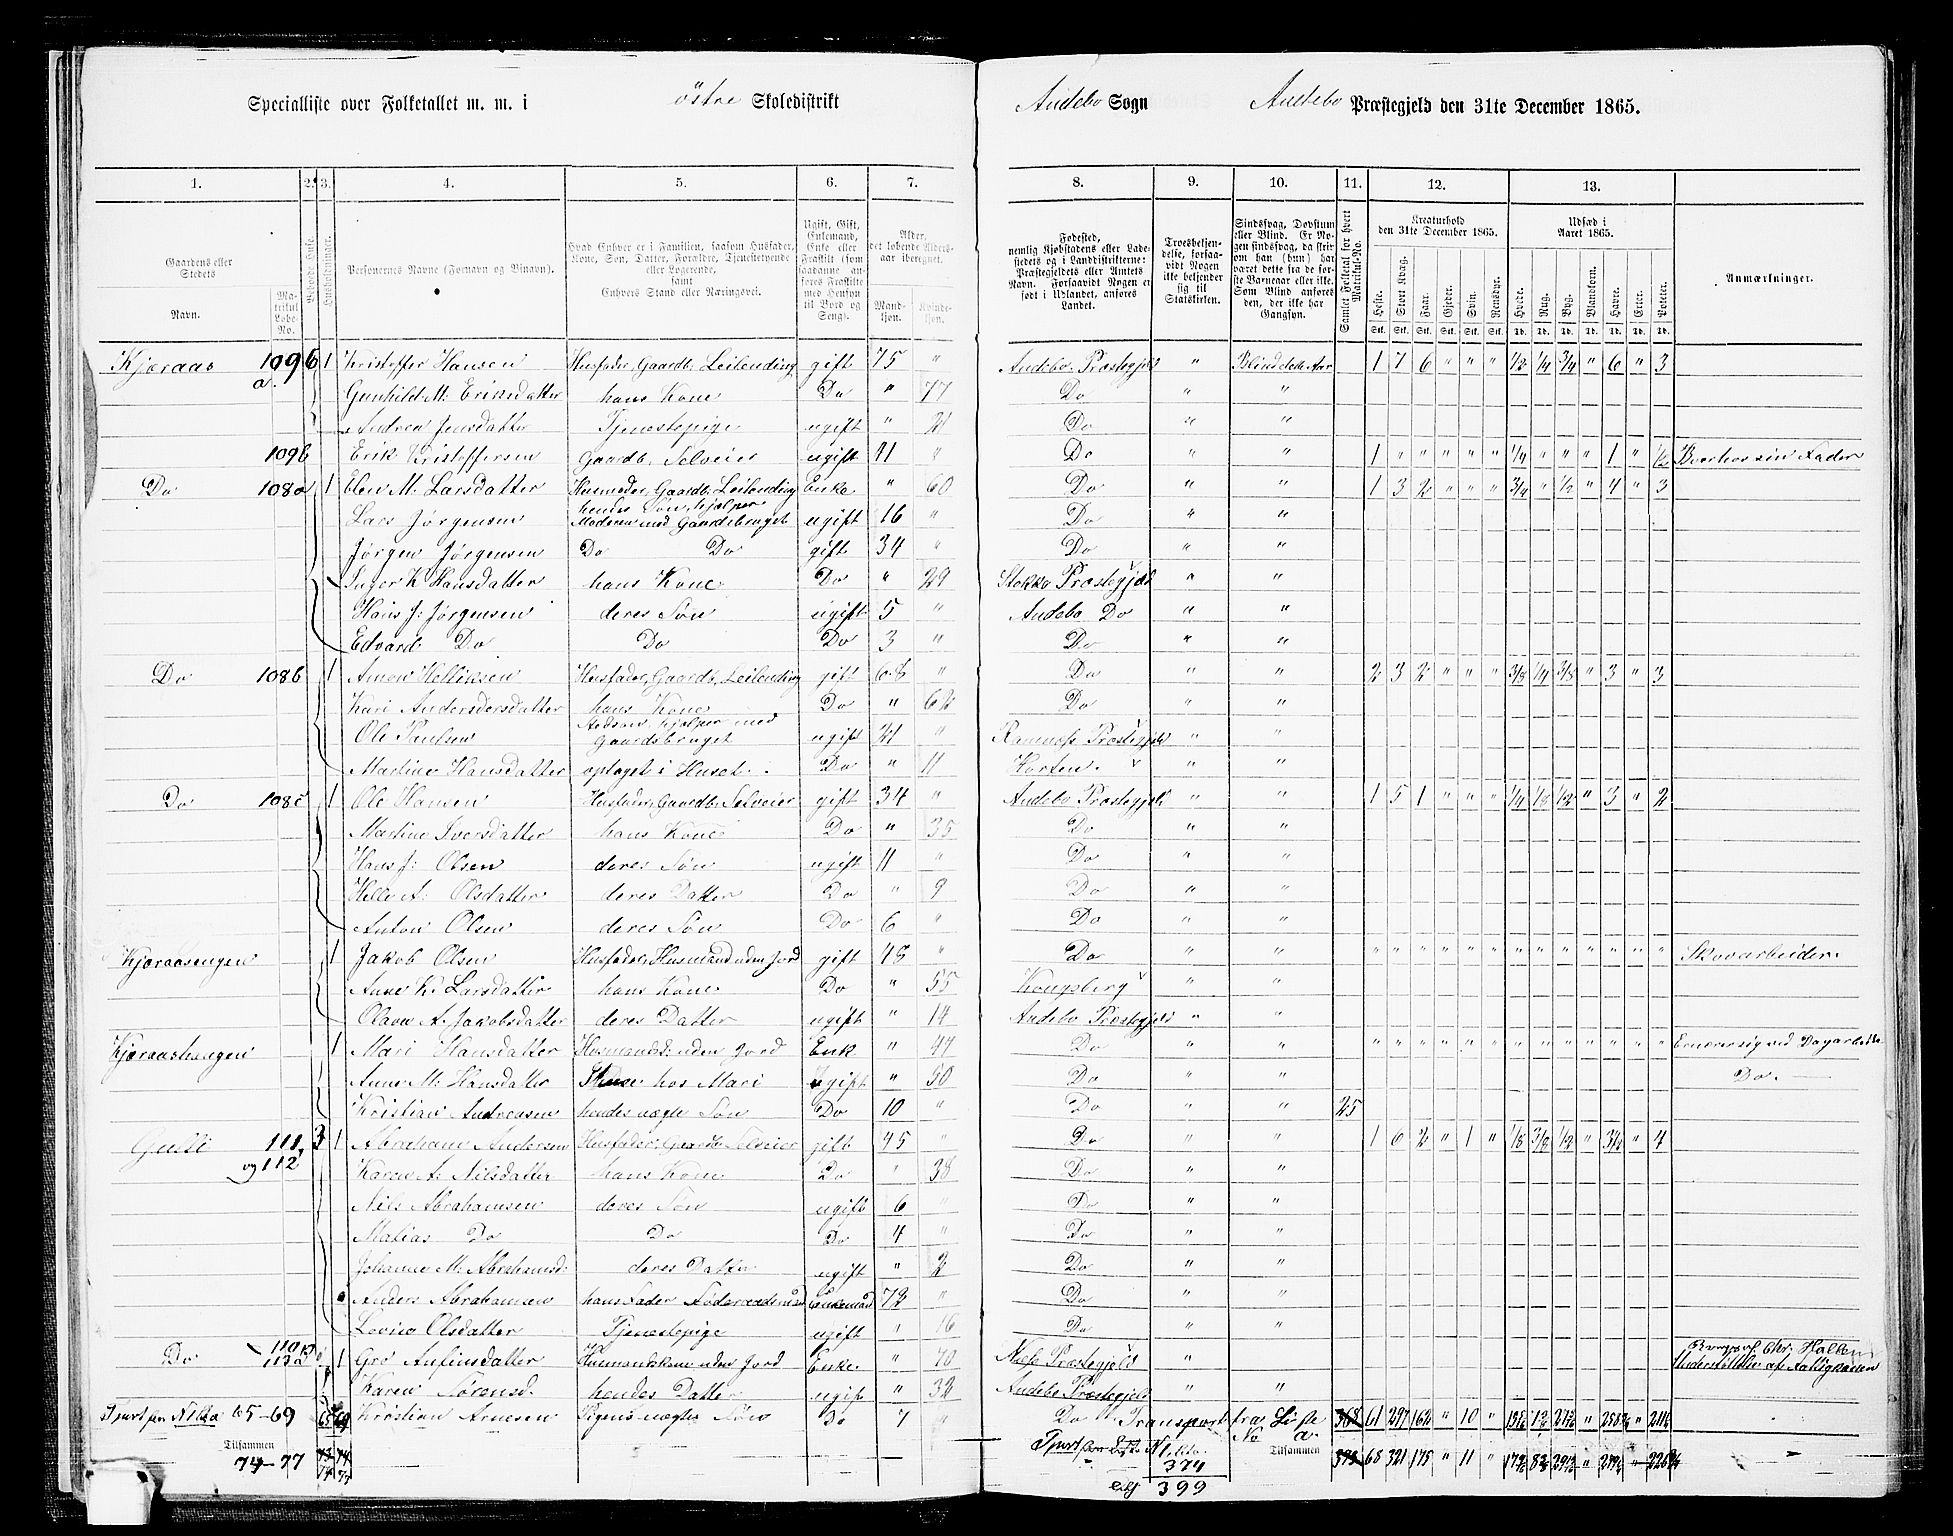 Specialliste over Folketallet m. m. i østre Skoledistrikt Andebo Sogn Andebo Præstegjeld den 31te December 1865.
1. 2. 3. 4. 5. 6. 7. 8. 9. 10. 11. 12. 13.
Gaardens eller Stedets Navn. Matrikul Løbe-No. Bebode Huse. Husholdninger. Personernes Navne (Fornavn og Binavn). Hvad Enhver er i Familien, saasom Husfader, Kone, Søn, Datter, Forældre, Tjenestetyende eller Logerende, samt Enhvers Stand eller Næringsvei. Ugift, Gift, Enkemand, Enke eller Fraskilt (som saadanne anføres Fraskilte med Hensyn til Bord og Seng). Alder, det løbende Alders-aar iberegnet. Mandkjøn. Kvindekjøn.
Fødested, nemlig Kjøbstadens eller Ladestedets og i Landdistrikterne: Præstegjeldets eller Amtets Navn. Forsaavidt Nogen er født i Udlandet, anføres Landet. Troesbekjendelse, forsaavidt Nogen ikke bekjender sig til Statskirken. Sindssvag, Døvstum eller Blind. Samlet Folketal for hvert Matrikul-No. Kreaturhold den 31te December 1865. Heste. Stort Kvæg. Faar. Gjeder. Svin. Rensdyr. Udsæd i Aaret 1865. Hvede. Rug. Byg. Blandkorn. Havre. Erter. Poteter. Anmærkninger.
Kjæraas 109 a. 6 1 Kristoffer Hansen Husfader, Gaardb. Leilending gift 75 " Andebo Præstegjeld " 1 7 6 " " " 1/2 1/4 3/4 " 6 " 3
Gunhild M: Eriksdatter hans Kone Do " 77 Do " "
Andrea Jensdatter Tjenestepige ugift " 21 Do " "
109 b Erik Kristoffersen Gaardb. Selveier ugift 41 Do " " 1 " " " " " 1/4 " " " 1 " 1/2 Boer hos sin Fader
Do 108 a 1 Elen M. Larsdatter Husmoder, Gaardb. Leilending Enke " 60 Do " " 1 3 2 " " " 3/4 " 1/2 " 4 " 3
Lars Jørgensen hendes Søn, hjælper Moderen med Gaardsbruget ugift 16 " Do " "
Jørgen Jørgensen Do Do gift 34 " Do " "
Inger K Hansdatter hans Kone Do " 29 Stokke Præstegjeld " "
Hans J: Jørgensen deres Søn ugift 5 " Andebo Do " "
Edvard Do Do Do 3 " Do " "
Do 108 b 1 Husfader, Gaardb. Leilending gift 68 " Do " " 2 3 2 " " " 3/8 1/4 3/8 " 3 " 3
Kari Andersdersdatter hans Kone Do " 62 Do " "
Ole Paulsen hjælper med Gaardsbruget ugift 21 " Ramnæs Præstegjeld " "
Martine Hansdatter optaget i Huset Do " 11 Horten. " "
Do 108 c 1 Ole Hansen Husfader, Gaardb. Selveier gift 34 " Andebo Præstegjeld " " 1 5 1 " " " 1/4 1/8 1/2 " 3 " 2
Martine Iversdatter hans Kone Do " 35 Do " "
Hans J: Olsen deres Søn ugift 11 " Do " "
Helle A: Olsdatter deres Datter Do " 9 Do " "
Anton Olsen deres Søn Do 6 " Do " "
Kjæraasengen 1 Jakob Olsen Husfader, Husmand uden Jord gift 48 " Do " " " " " " " " " " " " " " " Skovarbeider.
Anne K. Larsdatter hans Kone Do " 55 Kongsberg " "
Olava A. Jakobsdatter deres Datter ugift " 14 Andebo Præstegjeld " "
Kjæraashaugen 1 Mari Hansdatter Husmandsd: uden Jord Enk " 47 Do " " " " " " " " " " " " " " " Ernærer sig ved Dagarbeide
Anne M: Hansdatter hos Mari ugift " 50 Do " " Do.
Kristian Andreasen hendes uægte Søn Do 10 " Do " " 25
Gulli 111 og 112 3 1 Abraham Andersen Husfader, Gaardb. Selveier gift 45 " Do " " 1 6 2 " 1 " 1/8 3/8 1/2 " 3 1/2 " 4
Karen A: Nilsdatter hans Kone Do " 38 Do " "
Nils Abrahamsen deres Søn ugift 6 " Do " "
Matias Do Do Do 4 " Do " "
Johanne M: Abrahamsd: deres Datter ugift " 2 Do " "
Anders Abrahamsen hans Fader Føderaadsmand Enkemand 72 " Do " "
Lovise Olsdatter Tjenestepige ugift " 16 Do " "
Do 110 113a 1 Gro Anfinsdatter Husmandskone uden Jord Enke " 70 Næs Præstegjeld " Understøttelse af Fattigkassen
Karen Sørensd. hendes Datter ugift " 32 Andebo Præstegjeld " "
65-69 Kristian Arnesen Pigens uægte Søn Do 7 " Do Transport fra Liste No a. 368 61 297 162 " 10 "
Tilsammen 74-77 Tilsammen 393 68 321 175 " 11 "
374
399